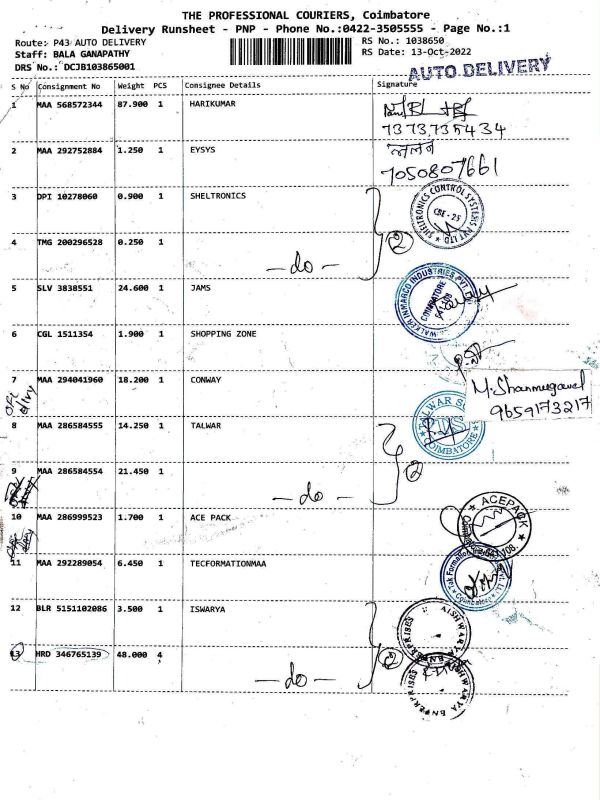 THE PROFESSIONAL COURIERS, Coimbatore
Delivery Runsheet - PNP - Phone No.:0422-3505555 - Page No.:1
Route: P43 AUTO DELIVERY
RS No.: 1038650
Staff: BALA GANAPATHY
RS Date: 13-Oct-2022
DRS No.: DCJB103865001
AUTO DELIVERY
S No Consignment No Weight PCS Consignee Details Signature
1 MAA 568572344 87.900 1 HARIKUMAR
7373735434
2 MAA 292752884 1.250 1 EYSYS
ललन
7050807661
3 DPI 10278060 0.900 1 SHELTRONICS
SHELTRONICS CONTROL SYSTEMS PVT LTD
CBE - 25
4 TMG 200296528 0.250 1
-do- 2
5 SLV 3838551 24.600 1 JAMS
INMARCO INDUSTRIES PVT
COIMBATORE
6 CGL 1511354 1.900 1 SHOPPING ZONE
7 MAA 294041960 18.200 1 CONWAY
M. Shanmugavel
9659173217
8 MAA 286584555 14.250 1 TALWAR
TALWAR
COIMBATORE
9 MAA 286584554 21.450 1
-do- 2
10 MAA 286999523 1.700 1 ACE PACK
ACEPACK
11 MAA 292289054 6.450 1 TECFORMATIONMAA
Coimbatore
12 BLR 5151102086 3.500 1 ISWARYA
AISHWARYA ENTERPRISES
13 HRD 346765139 48.000 4
-do- 2
AISHWARYA ENTERPRISES